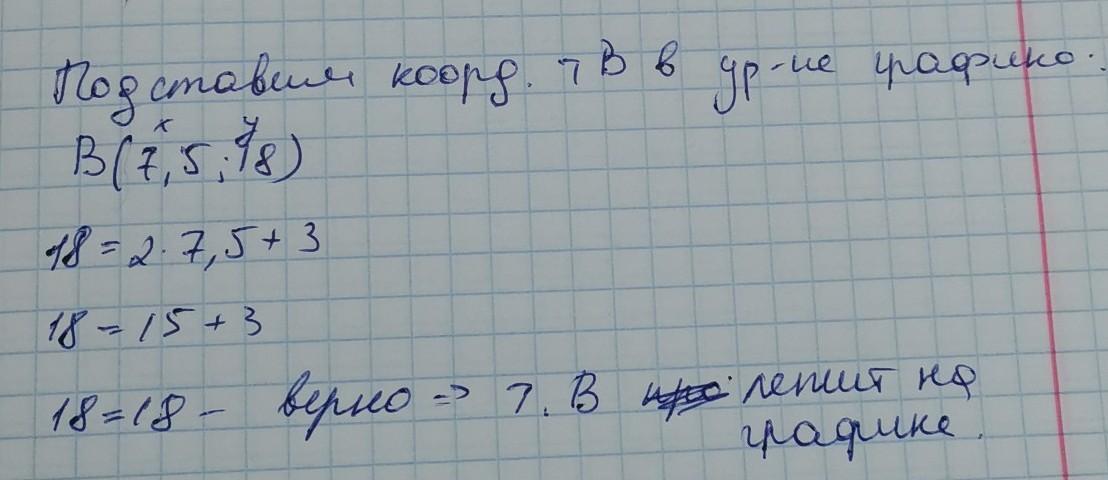 Подставим коорд. т В в ур-ие графика:
x y
B(7,5; 18)
18 = 2 · 7,5 + 3
18 = 15 + 3
18 = 18 – верно => т. В лежит на
графике.